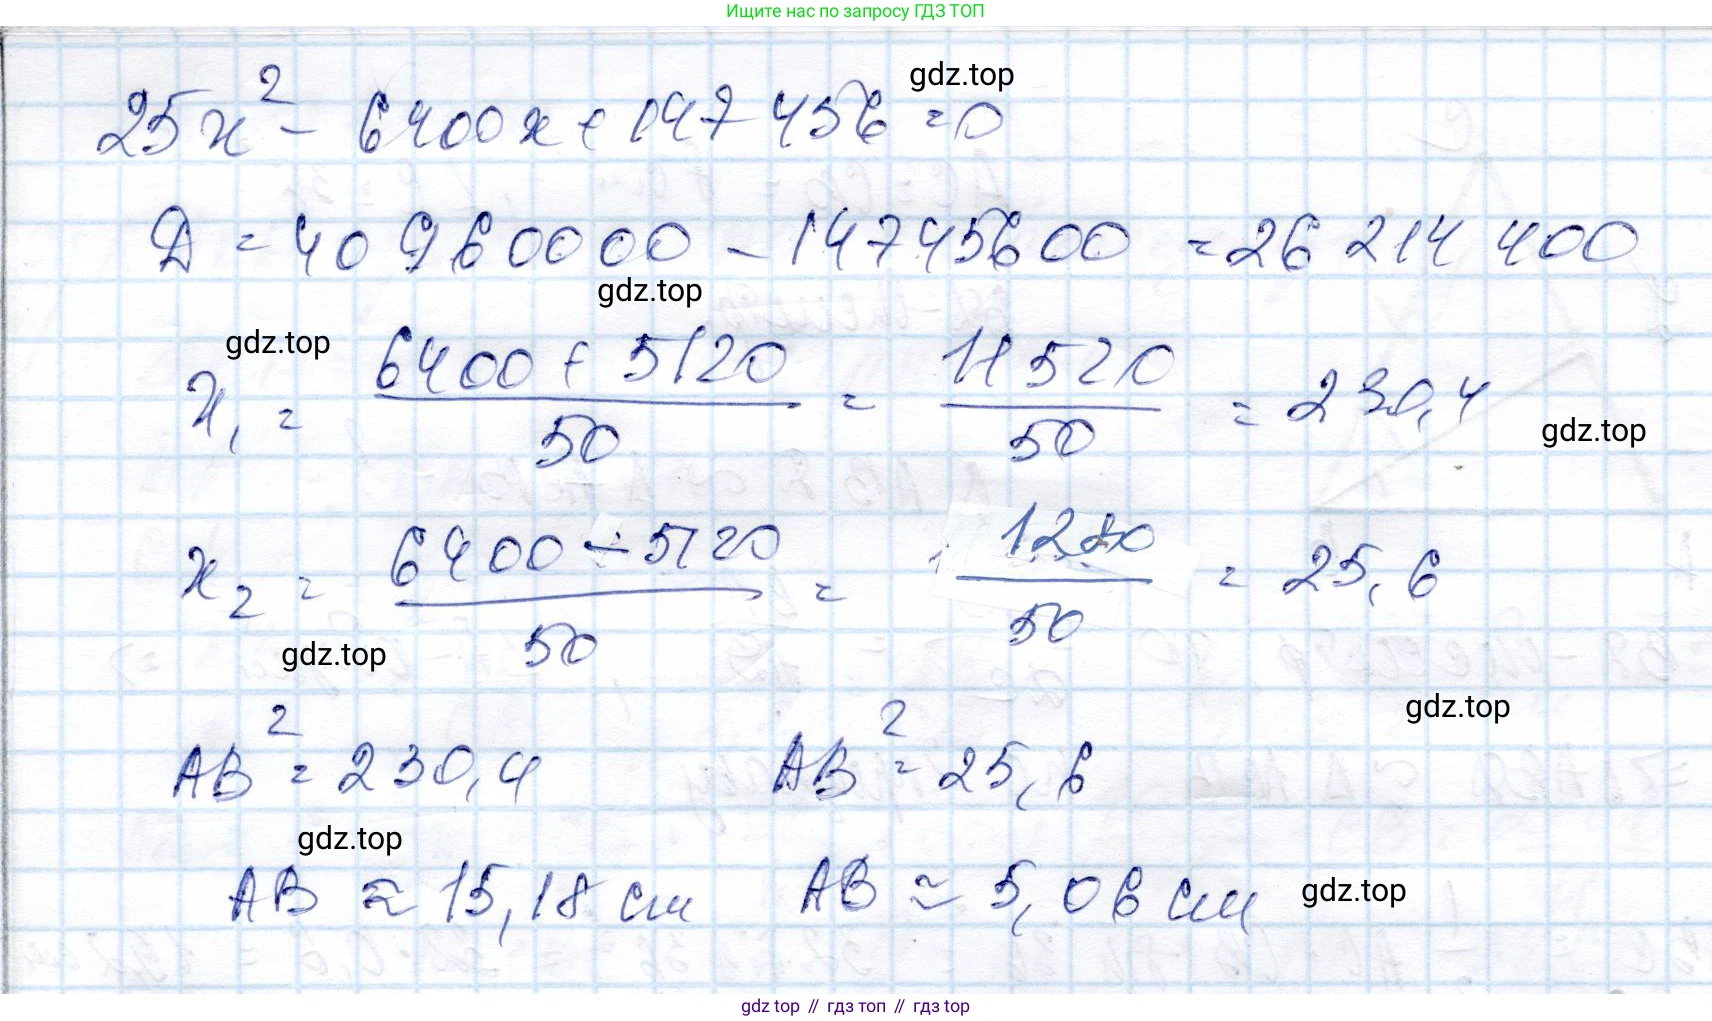 Ищите нас по запросу ГДЗ ТОП
gdz.top
25x² - 6400x + 147 456 = 0
Д = 40 960000 - 14745600 = 26 214 400
gdz.top
gdz.top
x₁ = (6400 + 5120)/50 = 11520/50 = 230,4
gdz.top
x₂ = (6400 - 5120)/50 = 1280/50 = 25,6
gdz.top
gdz.top
AB² = 230,4 AB² = 25,6
gdz.top
AB ≈ 15,18 см AB ≈ 5,06 см
gdz.top
gdz top // гдз топ // gdz top